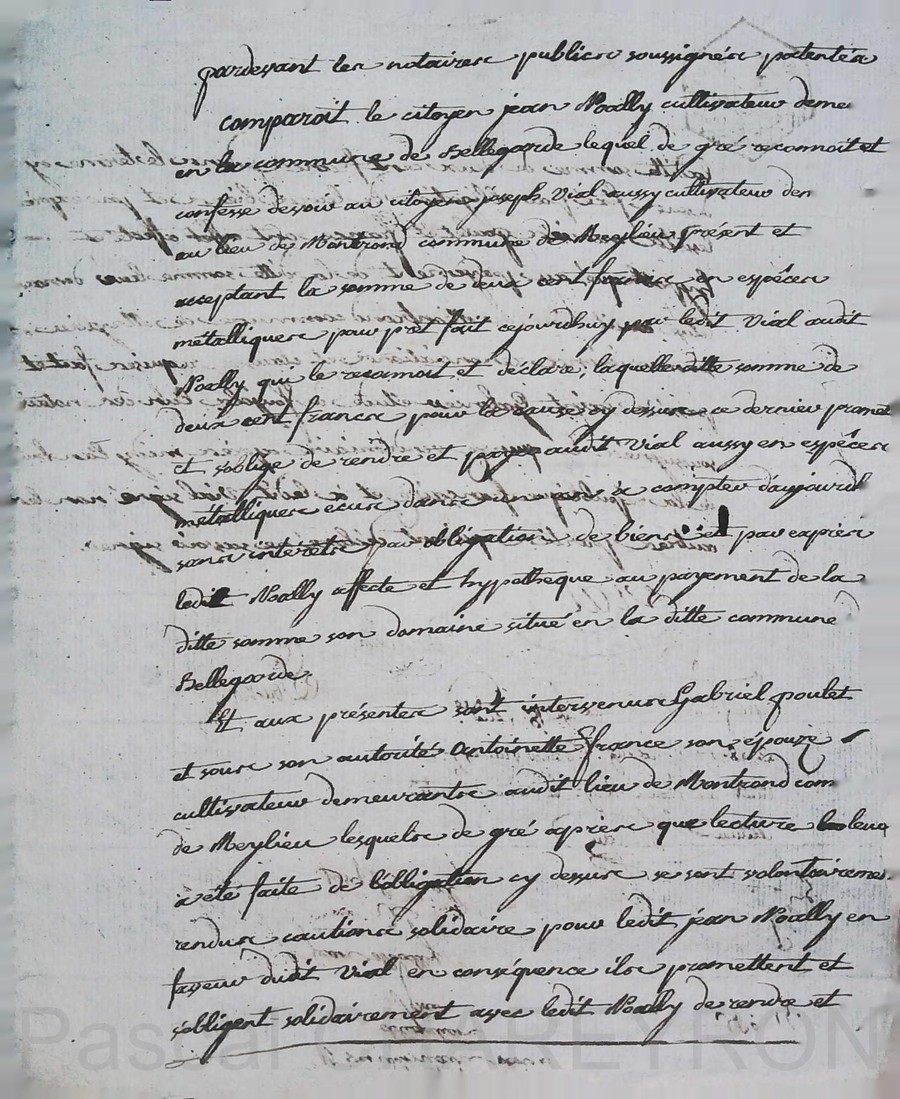 pardevant les notaires publics soussignés patentés
comparoit le citoyen jean Noally cultivateur deme
en la commune de Bellegarde lequel de gré reconnoit et
confesse devoir au citoyen joseph Vial aussy cultivateur dem
au lieu de Montrond commune de Meylieu présent et
acceptant la somme de deux cent francs en espèces
métalliques pour prêt fait cejourdhuy par ledit Vial audit
Noally qui le reconnoit et déclare, laquelle ditte somme de
deux cent francs pour la cause cy dessus ce dernier promet
et soblige de rendre et payer audit Vial aussy en espèces
métalliques écus dans un an à compter d'aujourd
sans intérêts par obligation de biens et par exprès
ledit Noally affecte et hypotheque au payement de la
ditte somme son domaine situé en la ditte commune
Bellegarde
Et aux présentes sont intervenus Gabriel poulet
et sous son autorité Antoinette france son épouze
cultivateur demeurants audit lieu de Montrond com
de Meylieu lesquels de gré après que lecture leur
à été faite de l'obligation cy dessus se sont volontaireme
rendus cautions solidaire pour ledit jean Noally en
faveur dudit Vial en conséquence ils promettent et
s'obligent solidairement avec ledit Noally de rendre et